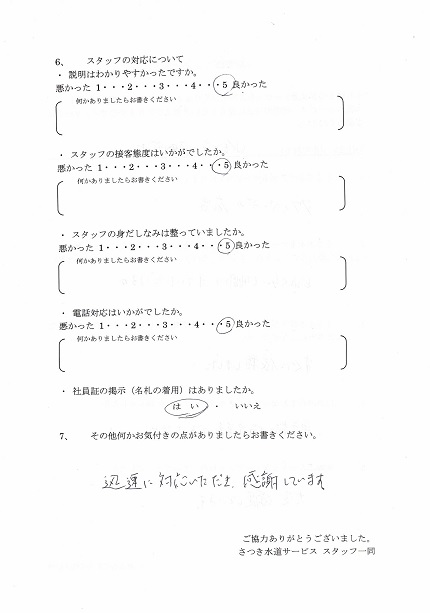 6、 スタッフの対応について
・ 説明はわかりやすかったですか。
悪かった 1・・・2・・・3・・・4・・・5 良かった
何かありましたらお書きください
・ スタッフの接客態度はいかがでしたか。
悪かった 1・・・2・・・3・・・4・・・5 良かった
何かありましたらお書きください
・ スタッフの身だしなみは整っていましたか。
悪かった 1・・・2・・・3・・・4・・・5 良かった
何かありましたらお書きください
・ 電話対応はいかがでしたか。
悪かった 1・・・2・・・3・・・4・・・5 良かった
何かありましたらお書きください
・ 社員証の掲示（名札の着用）はありましたか。
はい ・ いいえ
7、 その他何かお気付きの点がありましたらお書きください。
迅速に対応いただき、感謝しています
ご協力ありがとうございました。
さつき水道サービス スタッフ一同